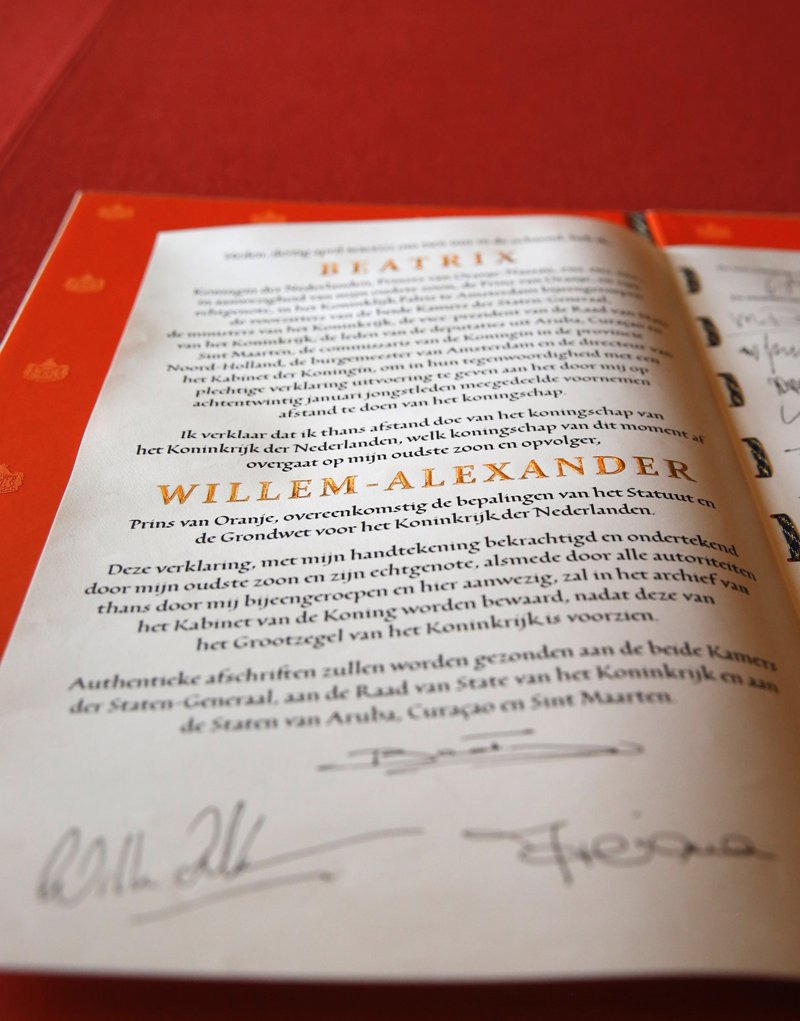 Heden, dertig april
BEATRIX
Koningin der Nederlanden, Prinses van Oranje-Nassau,
in aanwezigheid van mijn oudste zoon, de Prins van Oranje, en zijn
echtgenote, in het Koninklijk Paleis te Amsterdam bijeengeroepen
de voorzitters van de beide Kamers der Staten-Generaal,
de ministers van het Koninkrijk, de vice-president van de Raad van State
van het Koninkrijk, de leden en de deputaties uit Aruba, Curaçao en
Sint Maarten, de commissaris van de Koningin in de provincie
Noord-Holland, de burgemeester van Amsterdam en de directeur van
het Kabinet der Koningin, om in hun tegenwoordigheid met een
plechtige verklaring uitvoering te geven aan het door mij op
achtentwintig januari jongstleden meegedeelde voornemen
afstand te doen van het koningschap.
Ik verklaar dat ik thans afstand doe van het koningschap van
het Koninkrijk der Nederlanden, welk koningschap van dit moment af
overgaat op mijn oudste zoon en opvolger,
WILLEM-ALEXANDER
Prins van Oranje, overeenkomstig de bepalingen van het Statuut en
de Grondwet voor het Koninkrijk der Nederlanden.
Deze verklaring, met mijn handtekening bekrachtigd en ondertekend
door mijn oudste zoon en zijn echtgenote, alsmede door alle autoriteiten
thans door mij bijeengeroepen en hier aanwezig, zal in het archief van
het Kabinet van de Koning worden bewaard, nadat deze van
het Grootzegel van het Koninkrijk is voorzien.
Authentieke afschriften zullen worden gezonden aan de beide Kamers
der Staten-Generaal, aan de Raad van State van het Koninkrijk en aan
de Staten van Aruba, Curaçao en Sint Maarten.